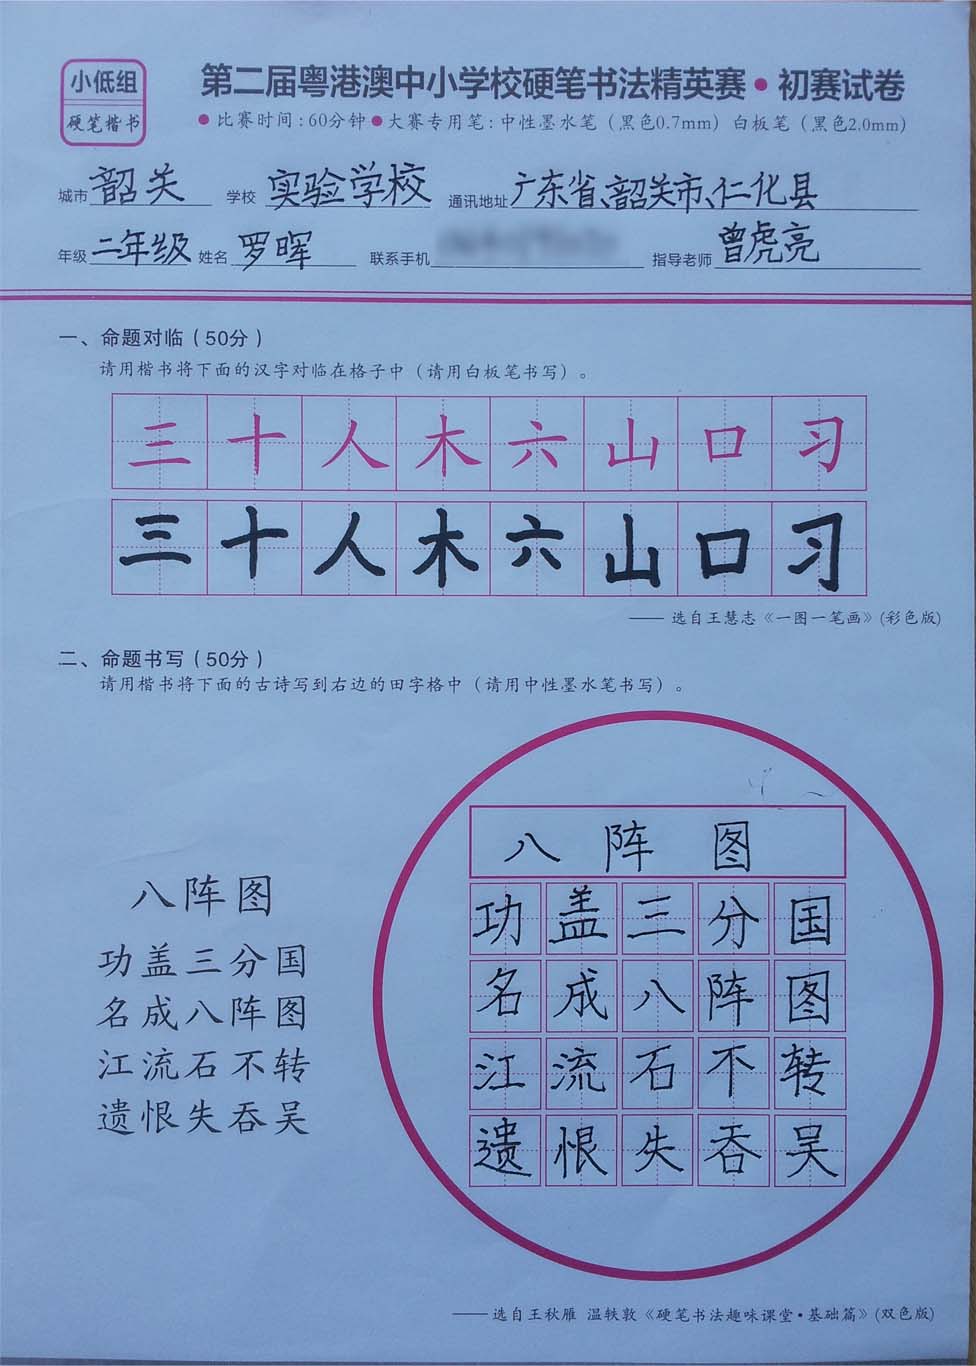 小低组
硬笔楷书
第二届粤港澳中小学校硬笔书法精英赛·初赛试卷
●比赛时间:60分钟●大赛专用笔:中性墨水笔（黑色0.7mm）白板笔（黑色2.0mm）
城市 韶关 学校 实验学校 通讯地址 广东省、韶关市、仁化县
年级 二年级 姓名 罗晖 联系手机 指导老师 曾虎亮
一、命题对临（50分）
请用楷书将下面的汉字对临在格子中（请用白板笔书写）。
三十人木六山口习
三十人木六山口习
—— 选自王慧志《一图一笔画》(彩色版)
二、命题书写（50分）
请用楷书将下面的古诗写到右边的田字格中（请用中性墨水笔书写）。
八阵图
功盖三分国
名成八阵图
江流石不转
遗恨失吞吴
八阵图
功盖三分国
名成八阵图
江流石不转
遗恨失吞吴
—— 选自王秋雁 温轶敦《硬笔书法趣味课堂·基础篇》(双色版)